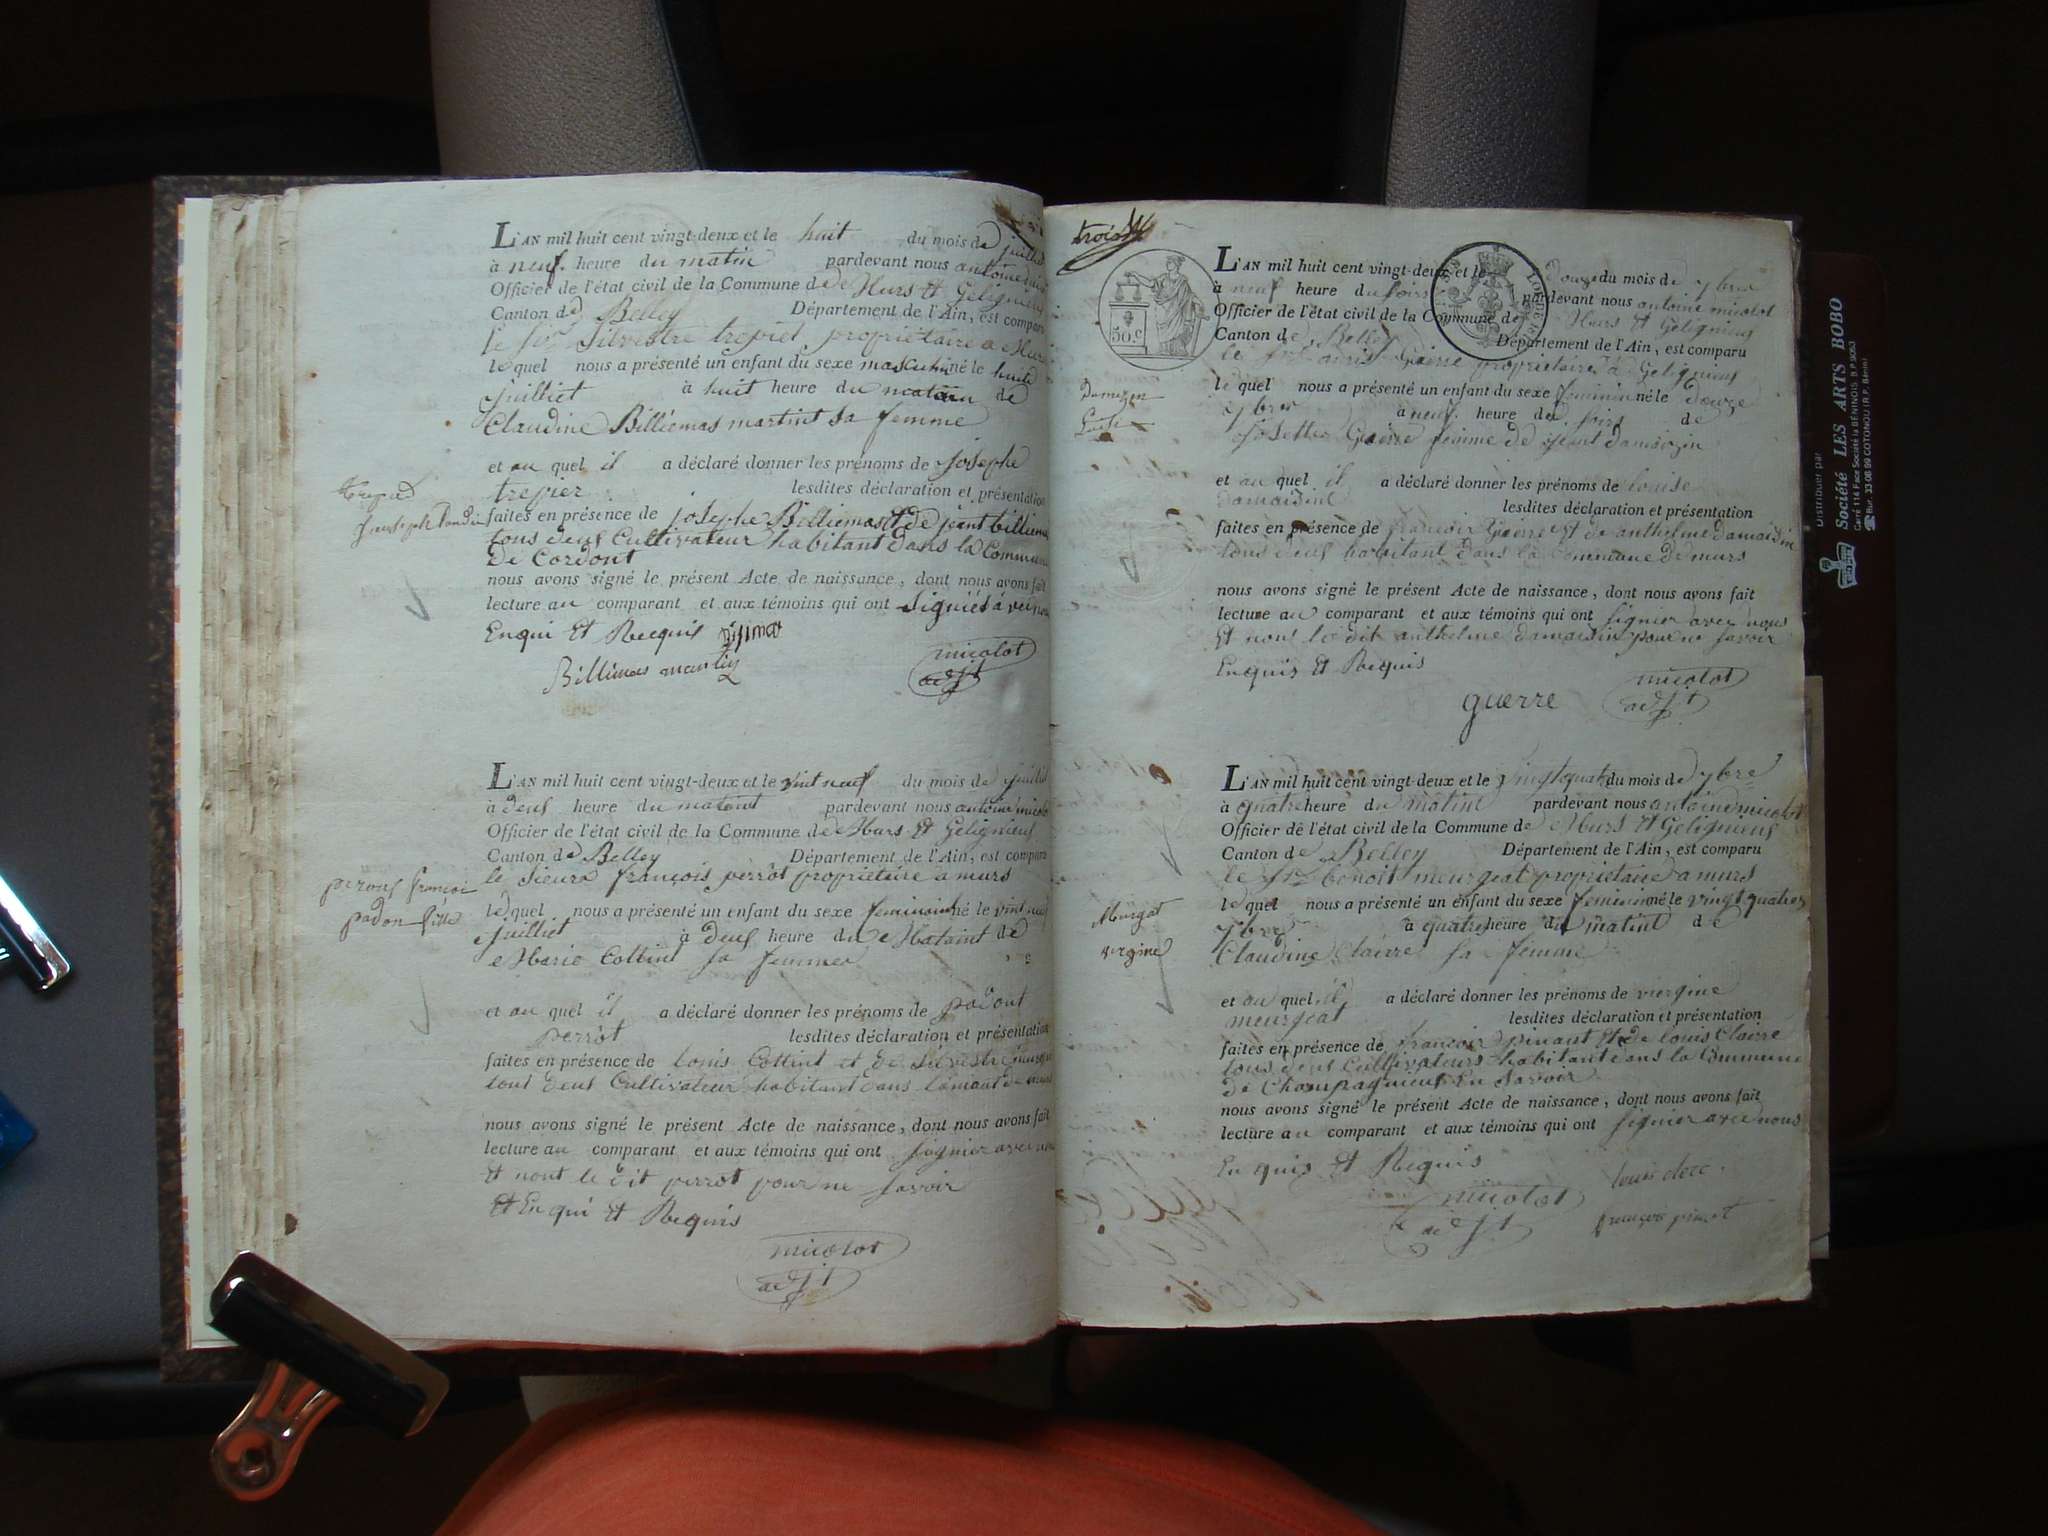 L'AN mil huit cent vingt-deux et le huit du mois de juillet
à neuf heure du matin pardevant nous antoine
Officier de l'état civil de la Commune de Murs et Gelignieux
Canton de Belley Département de l'Ain, est comparu
le Sr Silvestre trepiet propriétaire a Murs
le quel nous a présenté un enfant du sexe masculin né le huit
juilliet à huit heure du matin de
Claudine Billiemas martint sa femme
et au quel il a déclaré donner les prénoms de josephe
trepier lesdites déclaration et présentation
faites en présence de josephe Billiemas et de jeant billiemas
tous deus Cultivateur habitant dans la Commune
de Cordont
nous avons signé le présent Acte de naissance, dont nous avons fait
lecture au comparant et aux témoins qui ont signiés avec nous
Enqui Et Recquis
Billiemas martin
micolot
adjt
L'AN mil huit cent vingt-deux et le vint neuf du mois de juilliet
à deus heure du matint pardevant nous antoine micolot
Officier de l'état civil de la Commune de Murs Et Gelignieus
Canton de Belley Département de l'Ain, est comparu
le sieure françois perrot propriétaire a murs
le quel nous a présenté un enfant du sexe feminin né le vint neuf
juilliet à deus heure du Mataint de
Marie Cottint sa femme
et au quel il a déclaré donner les prénoms de padont
perrot lesdites déclaration et présentation
faites en présence de louis Cottint et de silvestre
tout deus Cultivateur habitant dans
nous avons signé le présent Acte de naissance, dont nous avons fait
lecture au comparant et aux témoins qui ont signier avec nous
Et nont le dit perrot pour ne savoir
Et En qui Et Requis
micolot
adjt
trois
50 c
L'AN mil huit cent vingt-deux et le douze du mois de 7bre
à neuf heure du soirs pardevant nous antoine micolot
Officier de l'état civil de la Commune de Murs et Gelignieus
Canton de Belley Département de l'Ain, est comparu
le propriétaire a Gelignieus
le quel nous a présenté un enfant du sexe feminin né le douze
7bre à neuf heure du soirs de
josette Guerre femme de jeant damaizin
et au quel il a déclaré donner les prénoms de louise
damaisint lesdites déclaration et présentation
faites en présence de françois Guerre et de anthelme damaisin
tous deus habitant dans la Commune de murs
nous avons signé le présent Acte de naissance, dont nous avons fait
lecture au comparant et aux témoins qui ont signier avec nous
Et nont le dit anthelme damaisin pour ne savoir
Enquis Et Requis
micolot
adjt
guerre
L'AN mil huit cent vingt-deux et le vingt quatre du mois de 7bre
à quatre heure du matint pardevant nous antoine micolot
Officier de l'état civil de la Commune de Murs Et Gelignieus
Canton de Belley Département de l'Ain, est comparu
le Sr benoit meurgeat propriétaire a murs
le quel nous a présenté un enfant du sexe feminin né le vingt quatre
7bre à quatre heure du matint de
Claudine Clairre sa femme
et au quel il a déclaré donner les prénoms de viergine
meurgeat lesdites déclaration et présentation
faites en présence de françois pinant Et de louis Clairre
tous deus Cultivateurs habitant dans la Commune
de Champagnieus En savoir
nous avons signé le présent Acte de naissance, dont nous avons fait
lecture au comparant et aux témoins qui ont signier avec nous
En quis Et Requis
louis clerc
micolot
adjt
françois pinet
Murgat
virgine
Distribuer par
Société LES ARTS BOBO